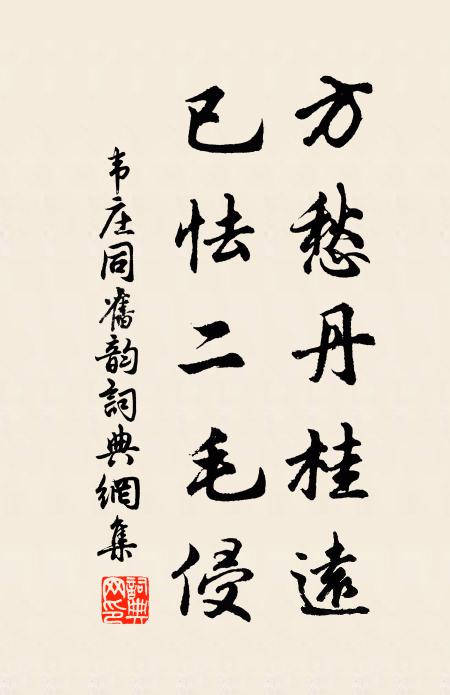 方愁丹桂遠
已怯二毛侵
韦庄同舊韵詞典網集
詞典网印